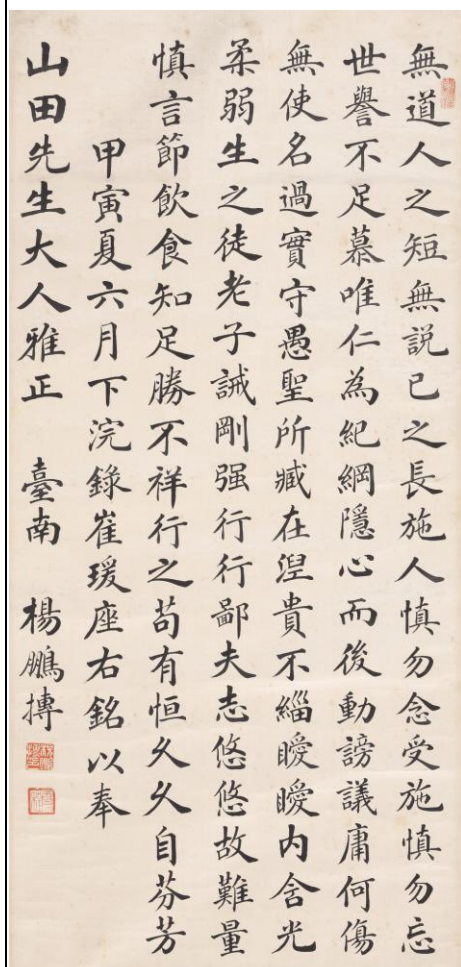 無道人之短無説己之長施人慎勿念受施慎勿忘
世譽不足慕唯仁為紀綱隱心而後動謗議庸何傷
無使名過實守愚聖所臧在湼貴不緇曖曖内含光
柔弱生之徒老子誡剛强行行鄙夫志悠悠故難量
慎言節飲食知足勝不祥行之苟有恒久久自芬芳
甲寅夏六月下浣錄崔瑗座右銘以奉
山田先生大人雅正 臺南 楊鵬摶